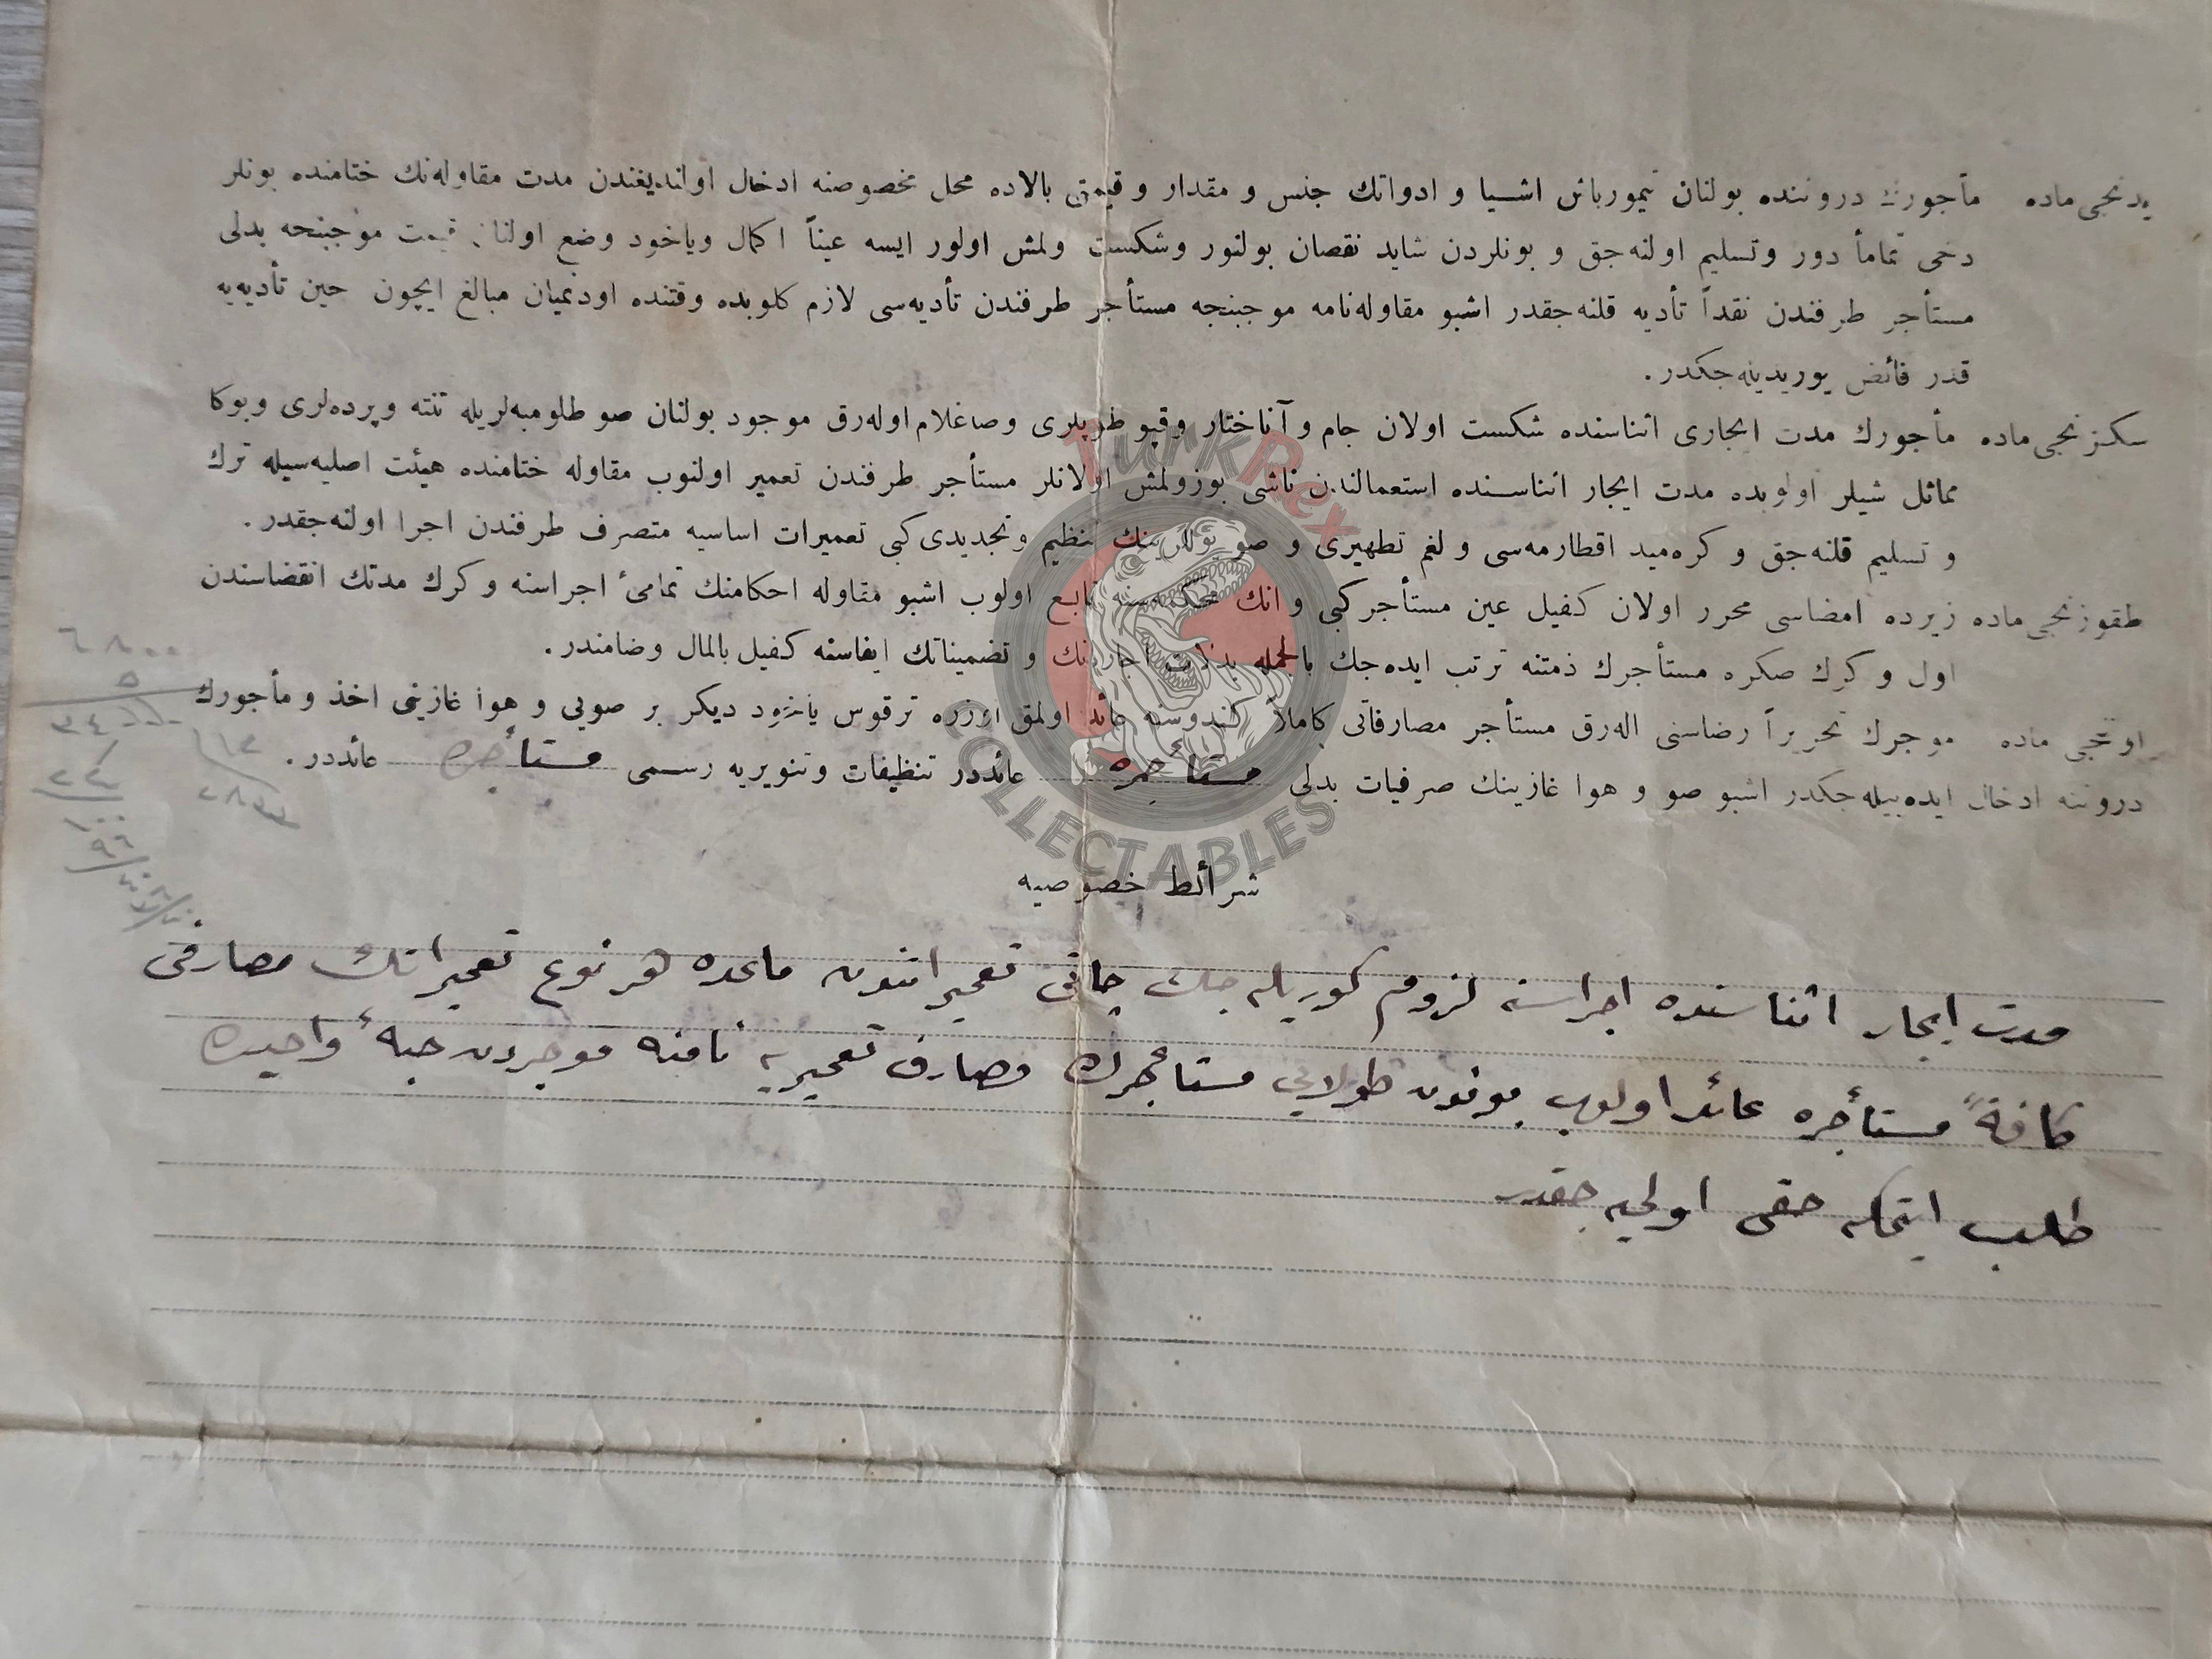 يدنجى ماده مأجورك دروننده بولنان تيمورباش اشيا و ادواتك جنس و مقدار و قيمتى بالاده محل مخصوصنه ادخال اولنديغندن مدت مقاوله‌نك ختامنده بونلر
دخى تماماً دور وتسليم اولنه‌جق و بونلردن شايد نقصان بولنور وشكست ولمش اولور ايسه عيناً اكمال وياخود وضع اولنان قيمت موجبنجه بدلى
مستأجر طرفندن نقداً تأديه قلنه‌جقدر اشبو مقاوله‌نامه موجبنجه مستأجر طرفندن تأديه‌سى لازم كلوبده وقتنده اودنميان مبالغ ايچون حين تأديه‌يه
قدر فائض يوريدينه‌جكدر.
سكزنجى ماده مأجورك مدت ايجارى اثناسنده شكست اولان جام و آناختار وقپو طوپلرى وصاغلام اوله‌رق موجود بولنان صو طلومبه‌لريله تنته وپرده‌لرى وبوكا
مماثل شيلر اولوبده مدت ايجار اثناسنده استعمالندن ناشى بوزولمش اولانلر مستأجر طرفندن تعمير اولنوب مقاوله ختامنده هيئت اصليه‌سيله ترك
و تسليم قلنه‌جق و كره‌ميد اقطارمه‌سى و لغم تطهيرى و صو يوللرينك تنظيم وتجديدى كبى تعميرات اساسيه متصرف طرفندن اجرا اولنه‌جقدر.
طقوزنجى ماده زيرده امضاسى محرر اولان كفيل عين مستأجر كبى و انك تابع اولوب اشبو مقاوله احكامنك تمامئ اجراسنه و كرك مدتك انقضاسندن
اول و كرك صكره مستأجرك ذمتنه ترتب ايده‌جك بالجمله بدلات ايجارينك و تضميناتك ايفاسنه كفيل بالمال وضامندر.
اوننجى ماده موجرك تحريراً رضاسنى اله‌رق مستأجر مصارفاتى كاملاً كندوسنه عائد اولمق اوزره ترقوس ياخود ديكر بر صويى و هوا غازينى اخذ و مأجورك
دروننه ادخال ايده‌بيله‌جكدر اشبو صو و هوا غازينك صرفيات بدلى مستأجره عائددر تنظيفات وتنويريه رسمى مستأجره عائددر.
شرائط خصوصيه
مدت ايجار اثناسنده اجراسنه لزوم كوريله جك چاتى تعميراتندن ماعدا هر نوع تعميراتك مصارفى
كافةً مستأجره عائد اولوب بوندن طولايى مستأجرك مصارف تعميريه نامنه موجردن حبهٔ واحيده
طلب ايتمكه حقى اولميه جقدر
TurkRex
COLLECTABLES